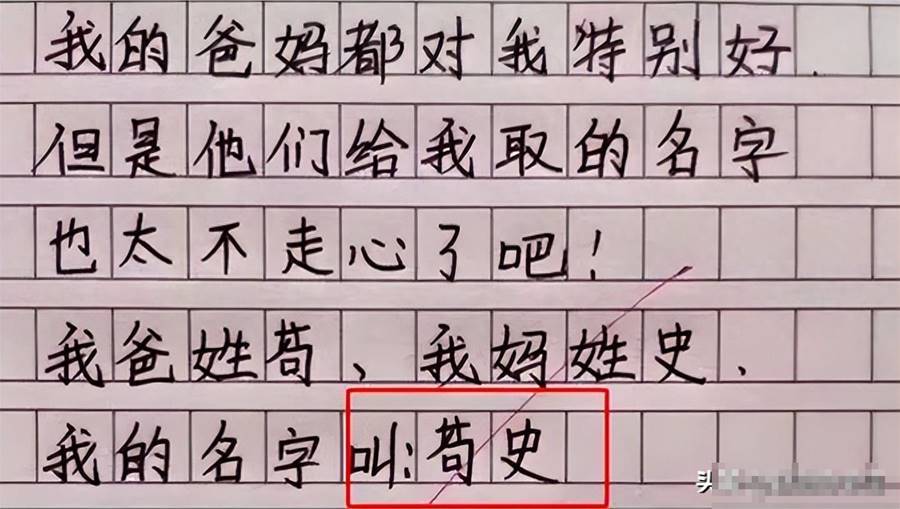 我的爸妈都对我特别好.
但是他们给我取的名字
也太不走心了吧!
我爸姓苟、我妈姓史.
我的名字叫:苟史
头